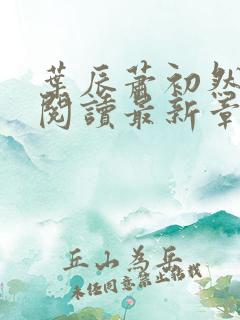 葉辰蕭初然
閱讀最新章
丘山為岳
未经同意禁止转载